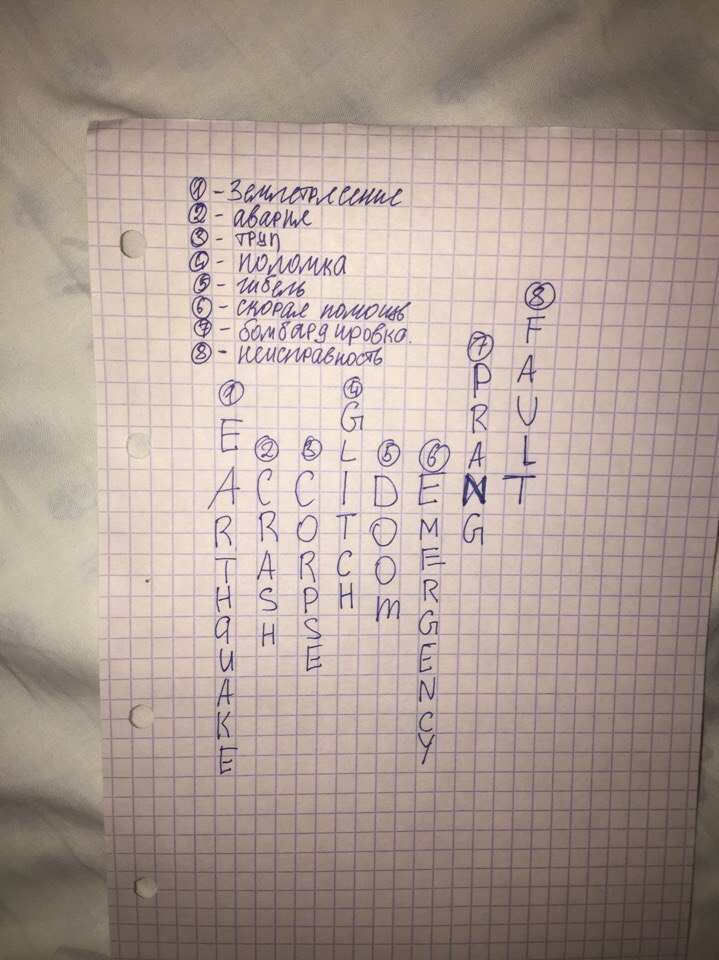 ① - Землетрясение
② - авария
③ - труп
④ - поломка
⑤ - гибель
⑥ - скорая помощь
⑦ - бомбардировка.
⑧ - неисправность
① EARTHQUAKE
② CRASH
③ CORPSE
④ GLITCH
⑤ DOOM
⑥ EMERGENCY
⑦ PRANG
⑧ FAULT